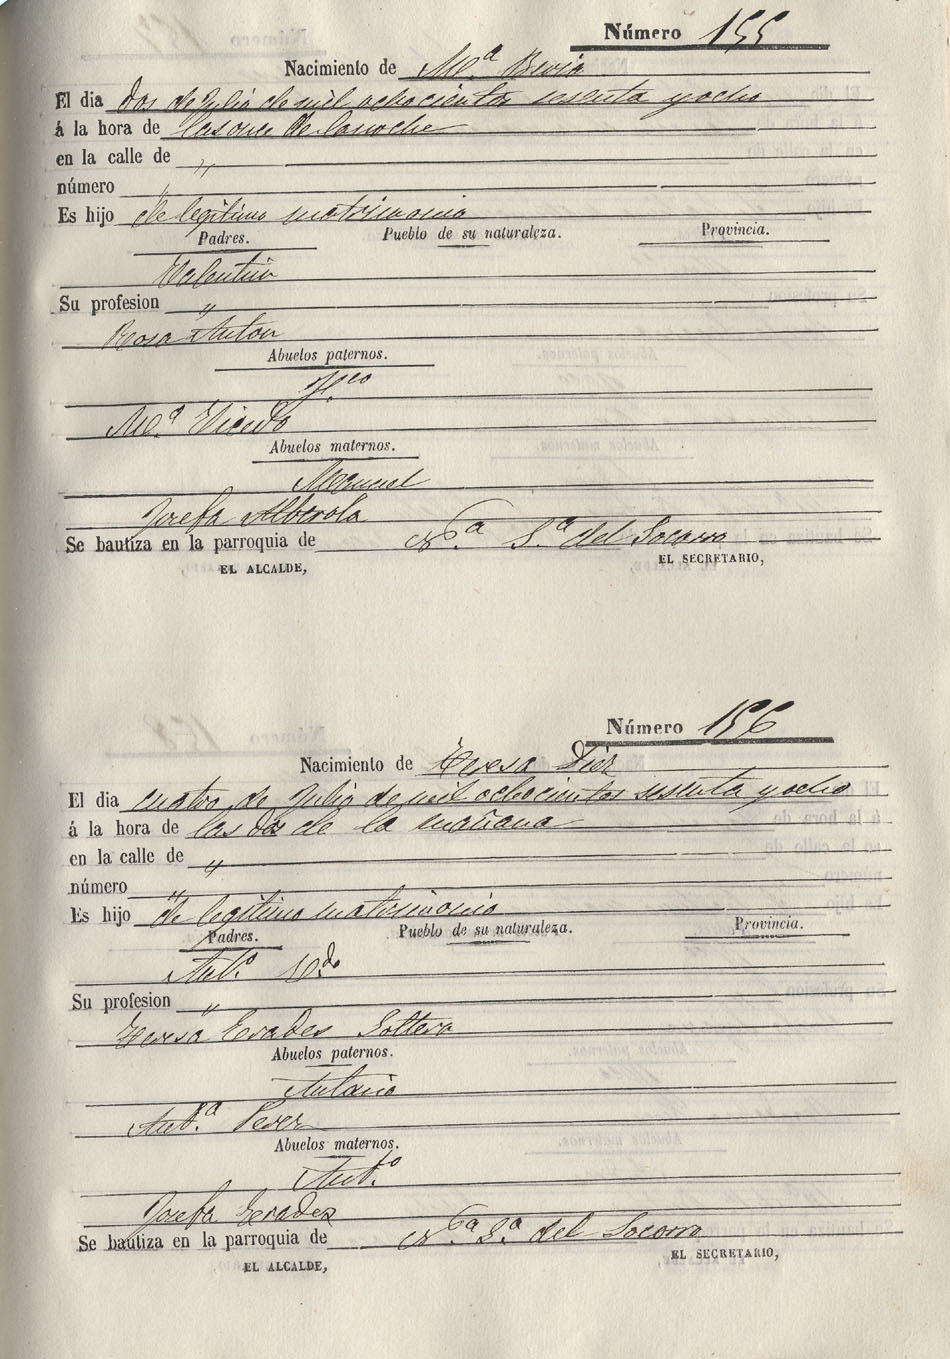 Número 155
Nacimiento de Mª Beria
El dia dos de Julio de mil ochocientos sesenta y ocho
á la hora de las once de la noche
en la calle de "
número "
Es hijo de legitimo matrimonio
Padres. Pueblo de su naturaleza. Provincia.
Valentin
Su profesion "
Rosa Anton
Abuelos paternos.
Fco
Mª
Abuelos maternos.
Manuel
Josefa Alberola
Se bautiza en la parroquia de Nª Sª del Socorro
EL ALCALDE, EL SECRETARIO,
Número 156
Nacimiento de Teresa Diez
El dia cuatro de Julio de mil ochocientos sesenta y ocho
á la hora de las dos de la mañana
en la calle de "
número "
Es hijo de legitimo matrimonio
Padres. Pueblo de su naturaleza. Provincia.
Antº
Su profesion "
Teresa Erades Soltera
Abuelos paternos.
Antonio
Antª Perez
Abuelos maternos.
Antº
Josefa Erades
Se bautiza en la parroquia de Nª Sª del Socorro
EL ALCALDE, EL SECRETARIO,